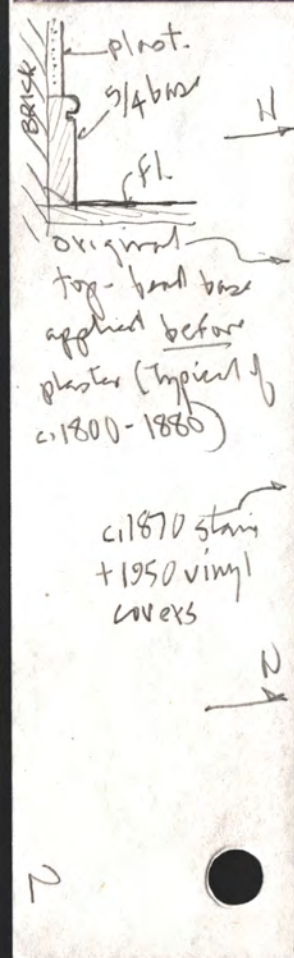 plast.
BRICK
5/4 base
fl.
N
original
top-bead base
applied before
plaster (typical of
c.1800-1880)
c.1870 stairs
+1950 vinyl
covers
N
2